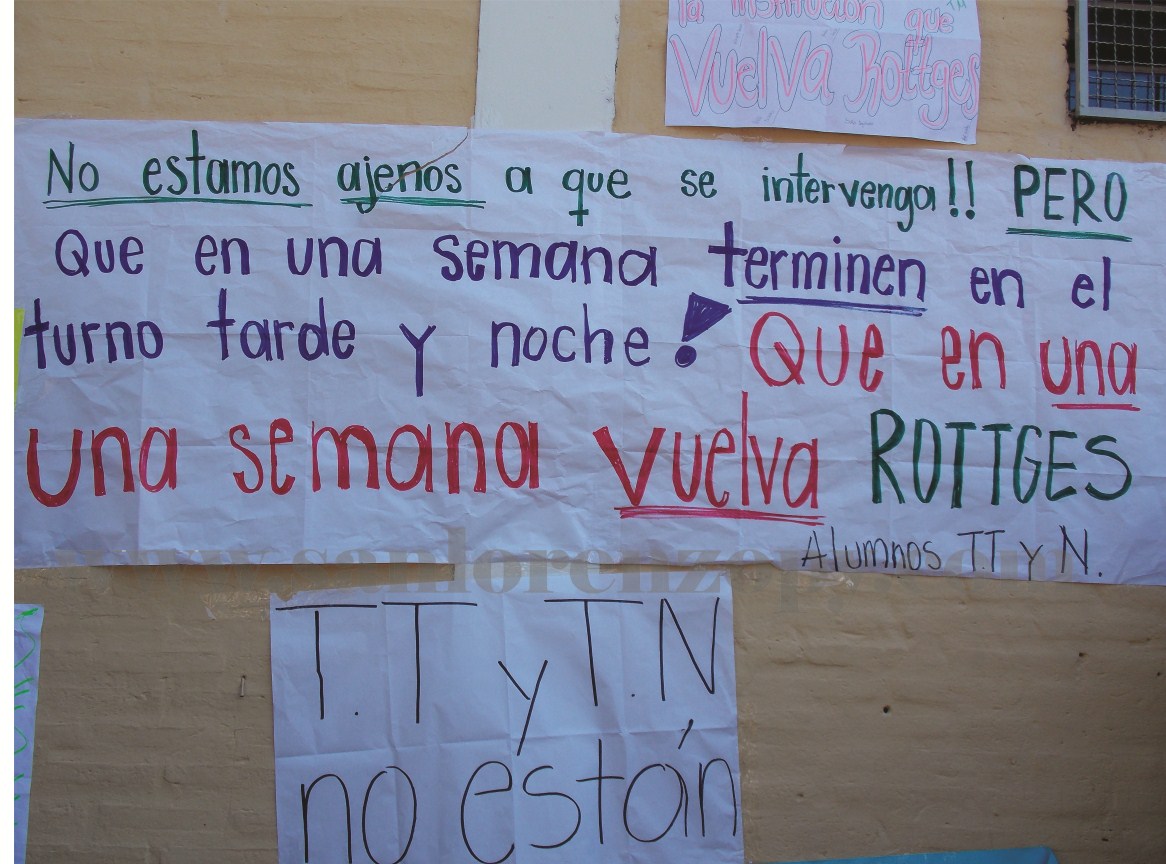 la institución que
Vuelva Rottges
No estamos ajenos a que se intervenga!! PERO
Que en una semana terminen en el
turno tarde y noche! Que en una
una semana vuelva ROTTGES
Alumnos T.T y N.
T.T y T.N
no están